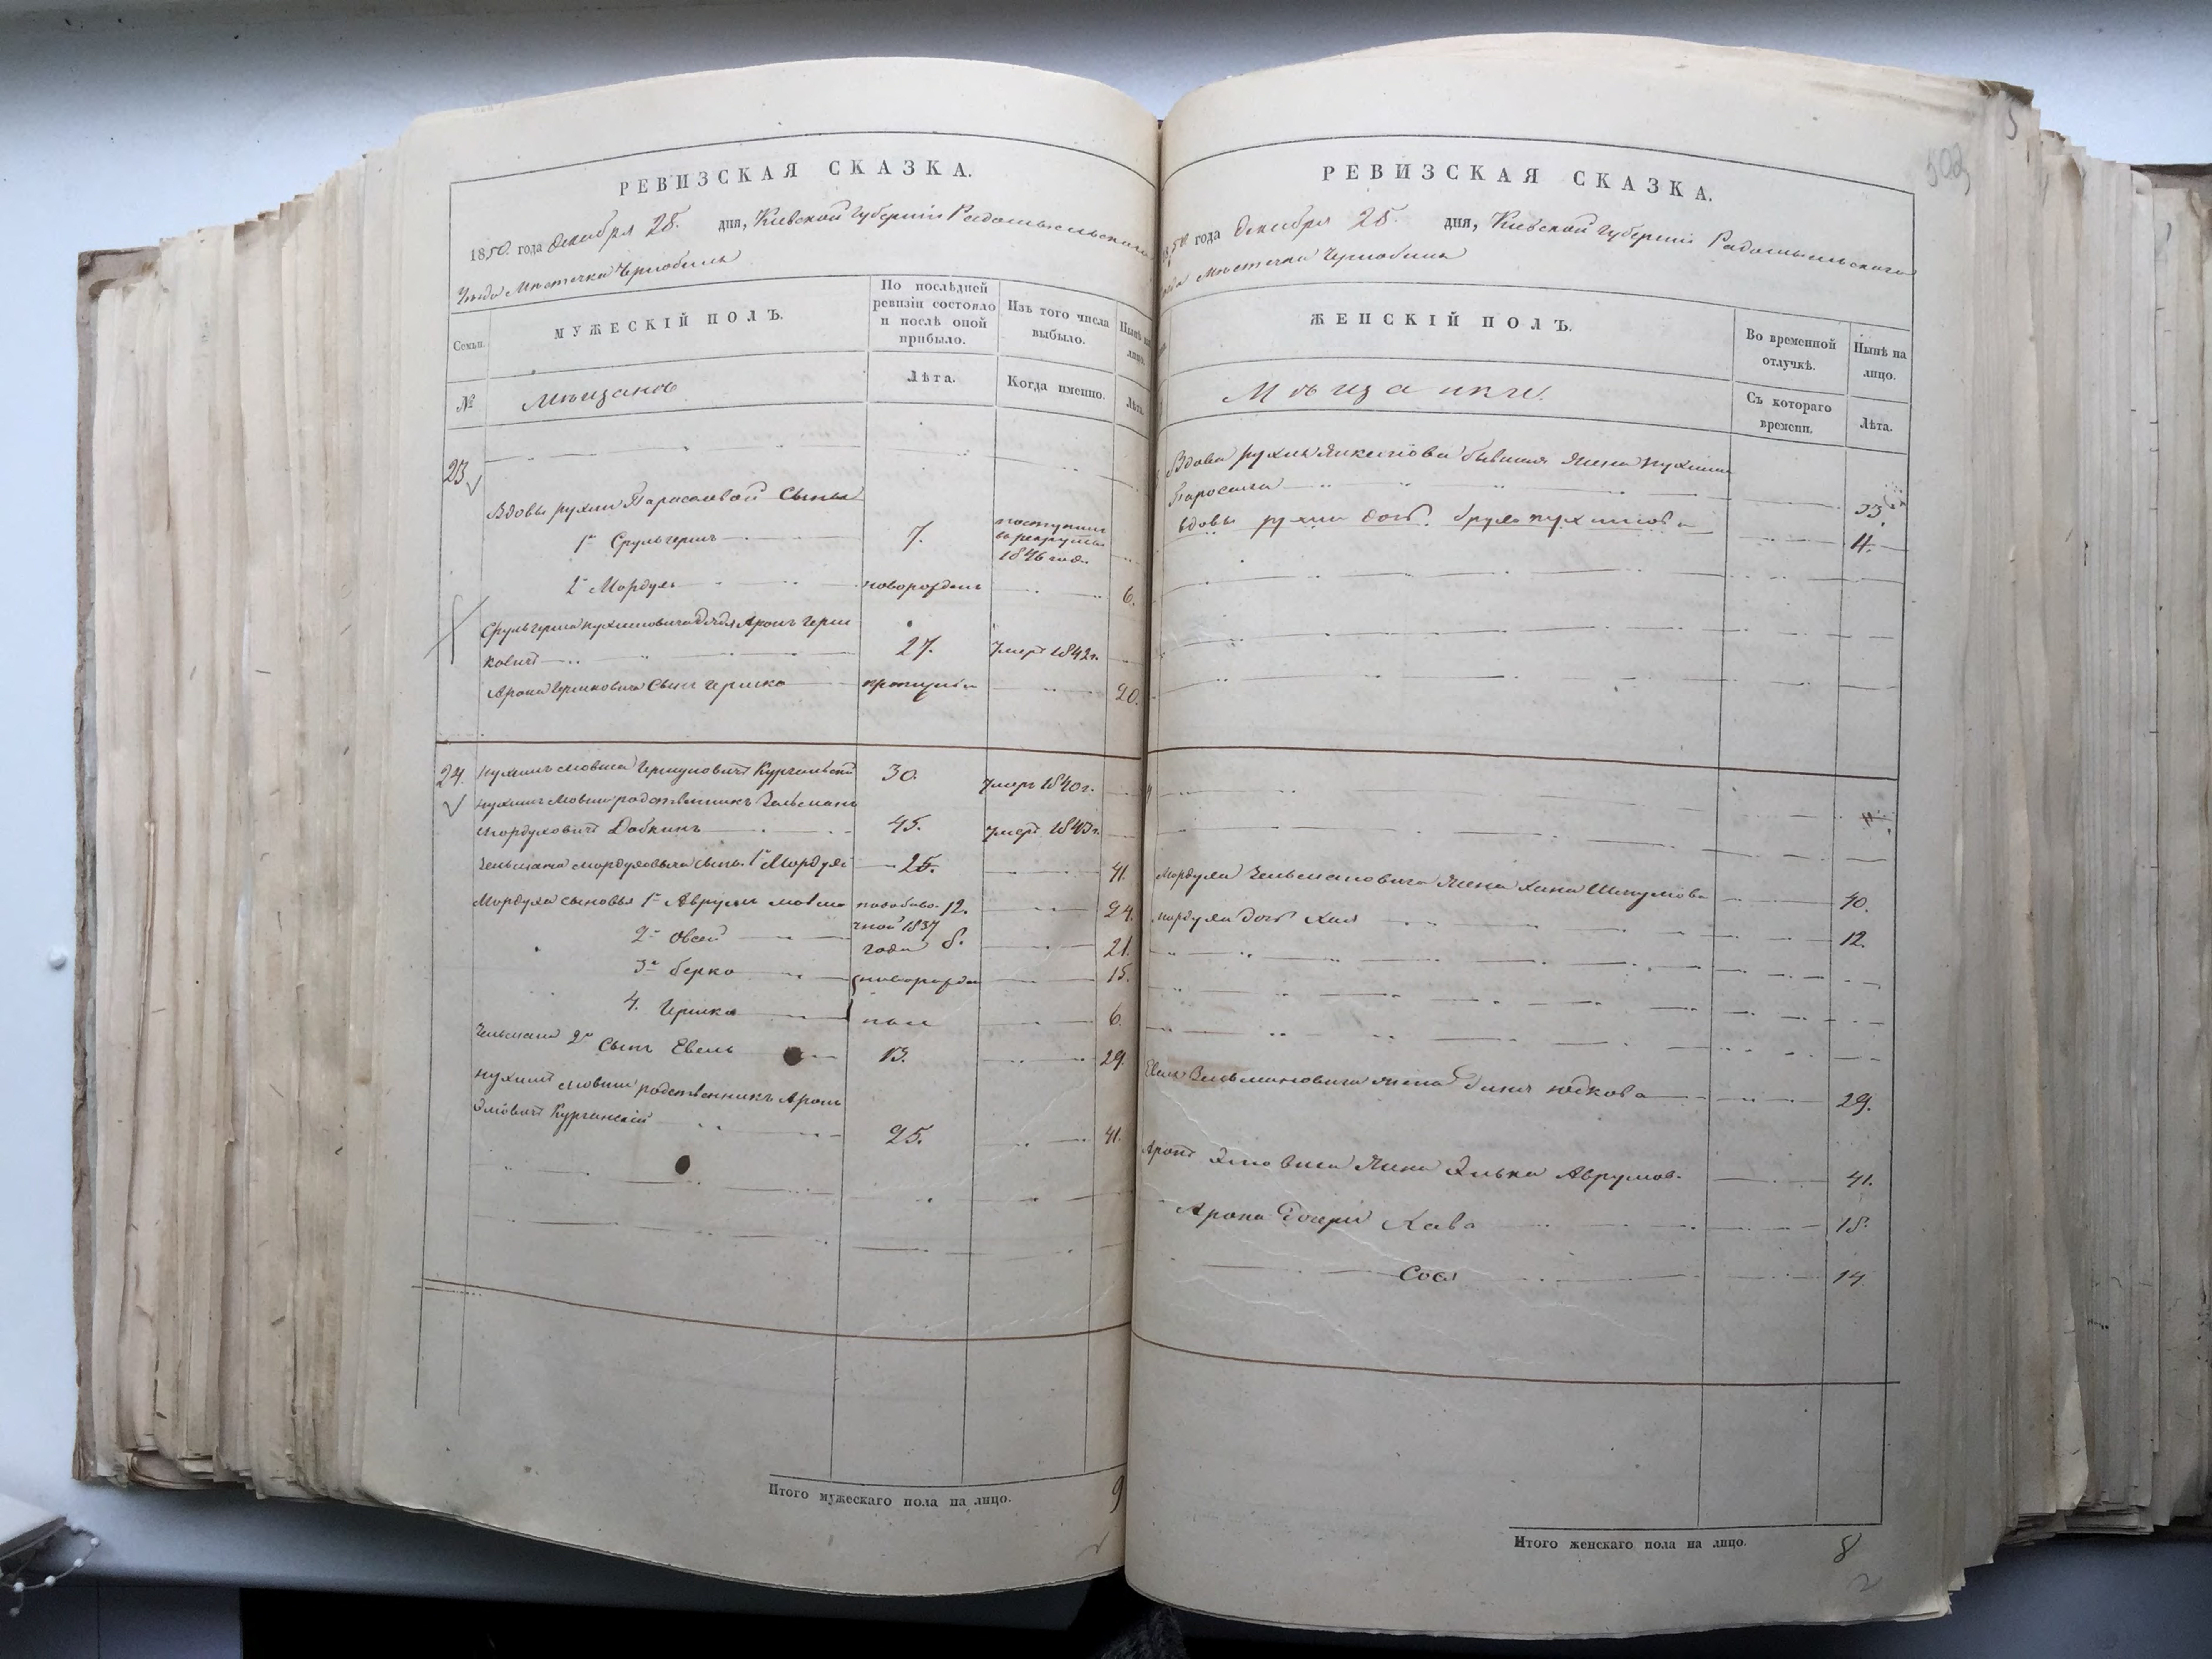 РЕВИЗСКАЯ СКАЗКА.
1850. года Декабря 25. дня, Кіевской Губерніи Радомысльскаго
Уезда Мѣстечка Чернобыля
Семьи.
МУЖЕСКІЙ ПОЛЪ.
По послѣдней ревизіи состояло и послѣ оной прибыло.
Изъ того числа выбыло.
Нынѣ на лицо.
№
Мѣщанъ
Лѣта.
Когда именно.
Лѣта.
23
Вдовы Рухли Тарасовой Сынья
1й Срульгерш 7. поступил въ рекруты 1846 год.
2й Мордухъ новорожденъ 6.
Срульгерша Нухимовича дядя Аронъ Герш
ковичъ 27. умеръ 1842 г.
Арона Гершковича Сынъ Гершко пропущен 20.
24. Нухимъ Мовша Гершуновичъ Курганскій 30. умеръ 1840 г.
Нухима Мовши родственникъ Зельманъ
Мордуховичъ Дабкинъ 45. умеръ 1843 г.
Зельмана Мордуховича сынъ 1й Мордухъ 25. 41.
Мордуха сыновья 1й Аврумъ Мовша 12. 24.
1837
2й Овсей года 8. 21.
3й Берко новорожден 15.
4. Гершко ные 6.
Зельмана 2й Сынъ Евель 13. 29.
Нухима Мовши родственникъ Аронъ
Эліовичъ Курганскій 25. 41.
Итого мужескаго пола на лицо. 9
РЕВИЗСКАЯ СКАЗКА.
1850 года Декабря 25. дня, Кіевской Губерніи Радомысльскаго
уезда Мѣстечка Чернобыля
503
ЖЕНСКІЙ ПОЛЪ.
Во временной отлучкѣ.
Нынѣ на лицо.
Мѣщанки.
Съ котораго времени.
Лѣта.
Вдова Рухля бывшая Жена Нухима
33.
вдовы Рухли доч. Нухимова 11.
Мордуха Зельмановича Жена Хана Шлумова 40.
Мордуха доч Хая 12.
Евеля Зельмановича жена Юдкова 29.
Арона Эліовича Жена Элька Аврумов. 41.
Арона Дочери Хава 18.
Сося 14.
Итого женскаго пола на лицо. 8